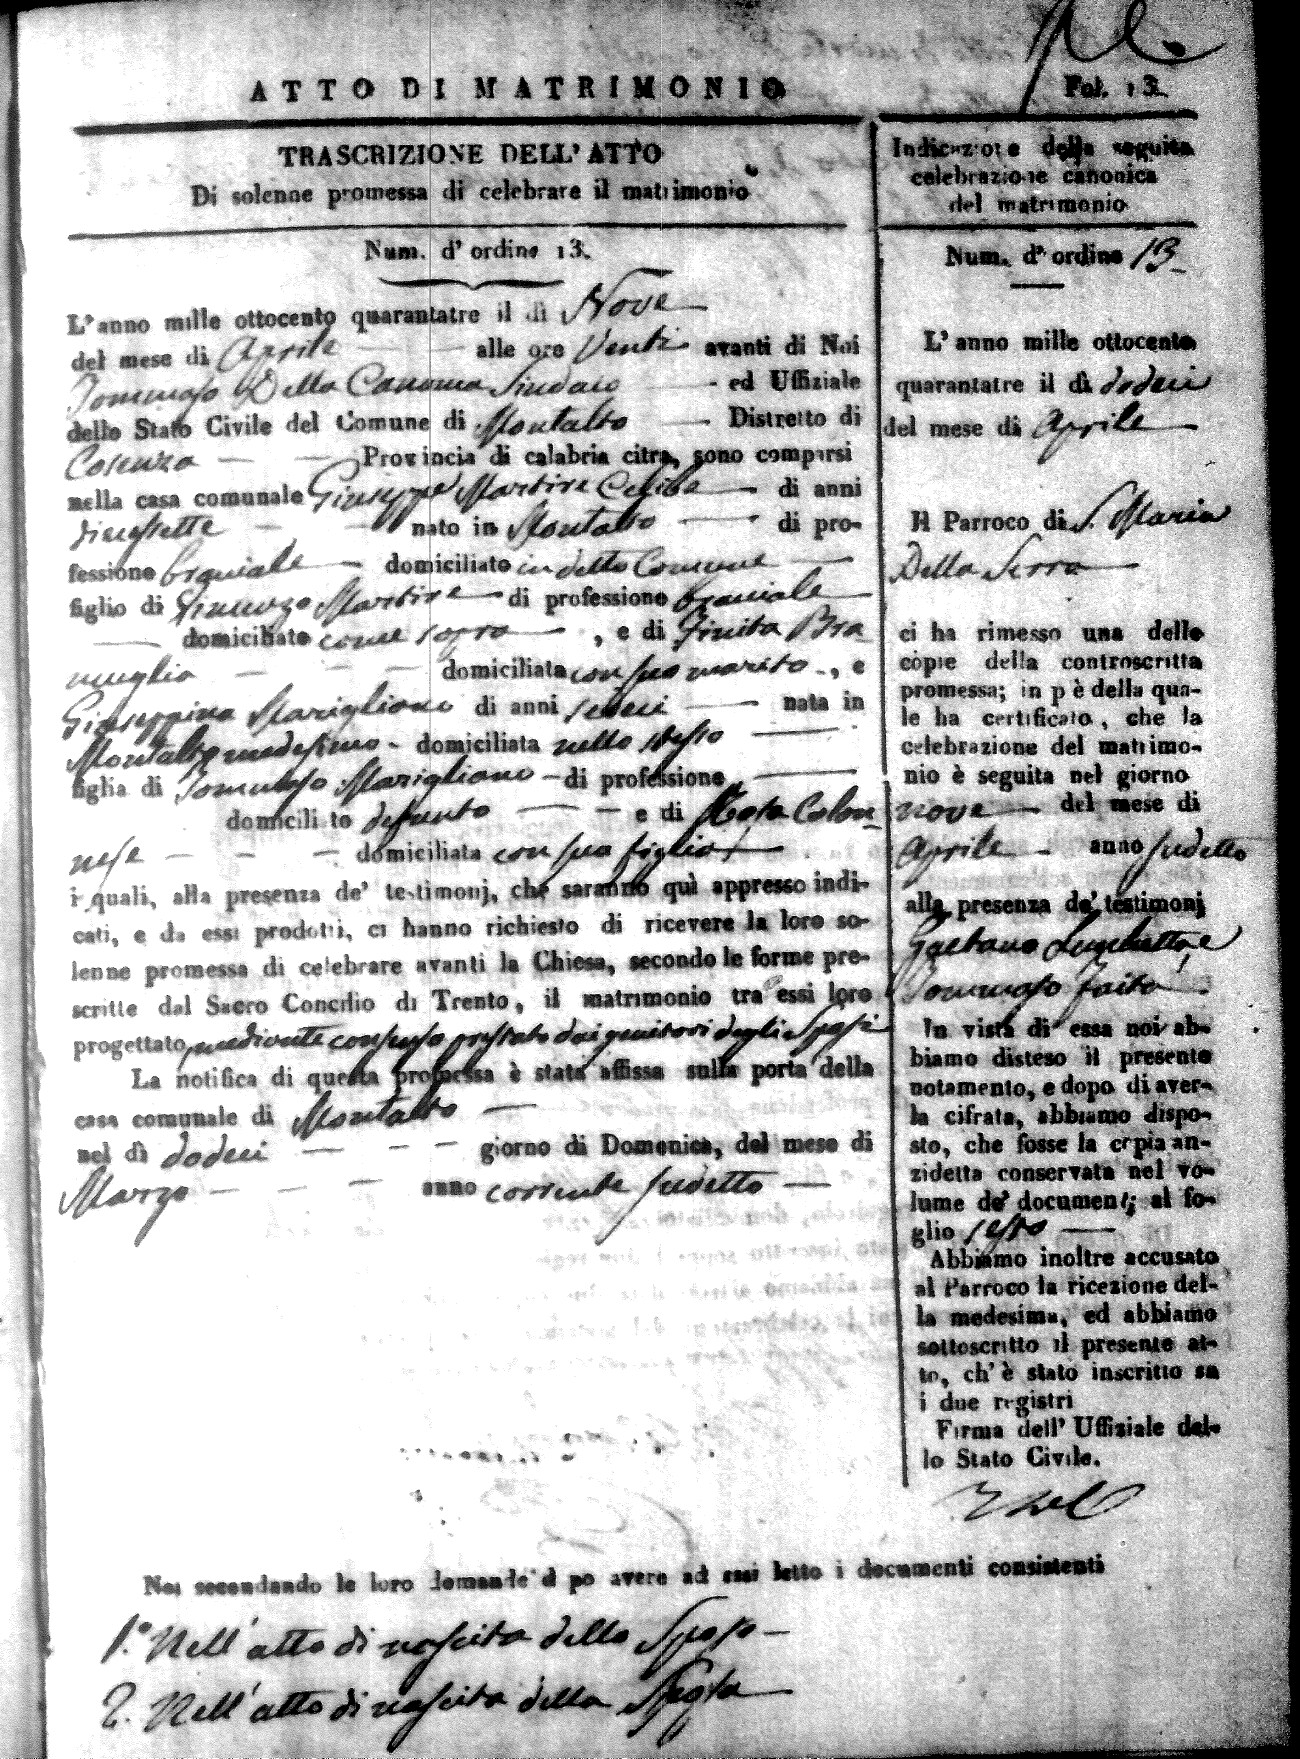 ATTO DI MATRIMONIO
Fol. 13.
TRASCRIZIONE DELL' ATTO
Di solenne promessa di celebrare il matrimonio
Num. d' ordine 13.
L' anno mille ottocento quarantatre il dì Nove
del mese di Aprile alle ore Venti avanti di Noi
Tommaso Della Canonica Sindaco ed Uffiziale
dello Stato Civile del Comune di Montalto Distretto di
Cosenza Provincia di calabria citra, sono comparsi
nella casa comunale Giuseppe Martire Celibe di anni
diecissette nato in Montalto di pro-
fessione braciale domiciliato in detto Comune
figlio di Vincenzo Martire di professione braciale
domiciliato come sopra, e di Trinita Bra
muglia domiciliata con suo marito, e
Giuseppina Marigliano di anni sedeci nata in
Montalto medesimo domiciliata nello stesso
figlia di Tommaso Marigliano di professione
domicili to defunto e di Rosa Colon-
nese domiciliata con sua figlia
i quali, alla presenza de' testimonj, che saranno quì appresso indi-
cati, e da essi prodotti, ci hanno richiesto di ricevere la loro so-
lenne promessa di celebrare avanti la Chiesa, secondo le forme pre-
scritte dal Sacro Concilio di Trento, il matrimonio tra essi loro
progettato, mediante consenso prestato dai genitori degli Sposi
La notifica di questa promessa è stata affissa sulla porta della
casa comunale di Montalto
nel dì dodeci giorno di Domenica, del mese di
Marzo anno corrente sudetto
Indicazione della seguita
celebrazione canonica
del matrimonio
Num. d' ordine 13
L' anno mille ottocento
quarantatre il dì dodeci
del mese di Aprile
Il Parroco di S. Maria
Della Serra
ci ha rimesso una delle
copie della controscritta
promessa; in p è della qua-
le ha certificato, che la
celebrazione del matrimo-
nio è seguita nel giorno
nove del mese di
Aprile anno sudetto
alla presenza de' testimonj
Gaetano e
Tommaso Faita
In vista di essa noi ab-
biamo disteso il presente
notamento, e dopo di aver-
la cifrata, abbiamo dispo-
sto, che fosse la copia an-
zidetta conservata nel vo-
lume de' documenti; al fo-
glio sesto
Abbiamo inoltre accusato
al Parroco la ricezione del-
la medesima, ed abbiamo
sottoscritto il presente at-
to, ch' è stato inscritto su
i due registri
Firma dell' Uffiziale del-
lo Stato Civile.
Noi secondando le loro domande d po avere ad essi letto i documenti consistenti
1.° Nell' atto di nascita dello Sposo
2. Nell' atto di nascita della Sposa